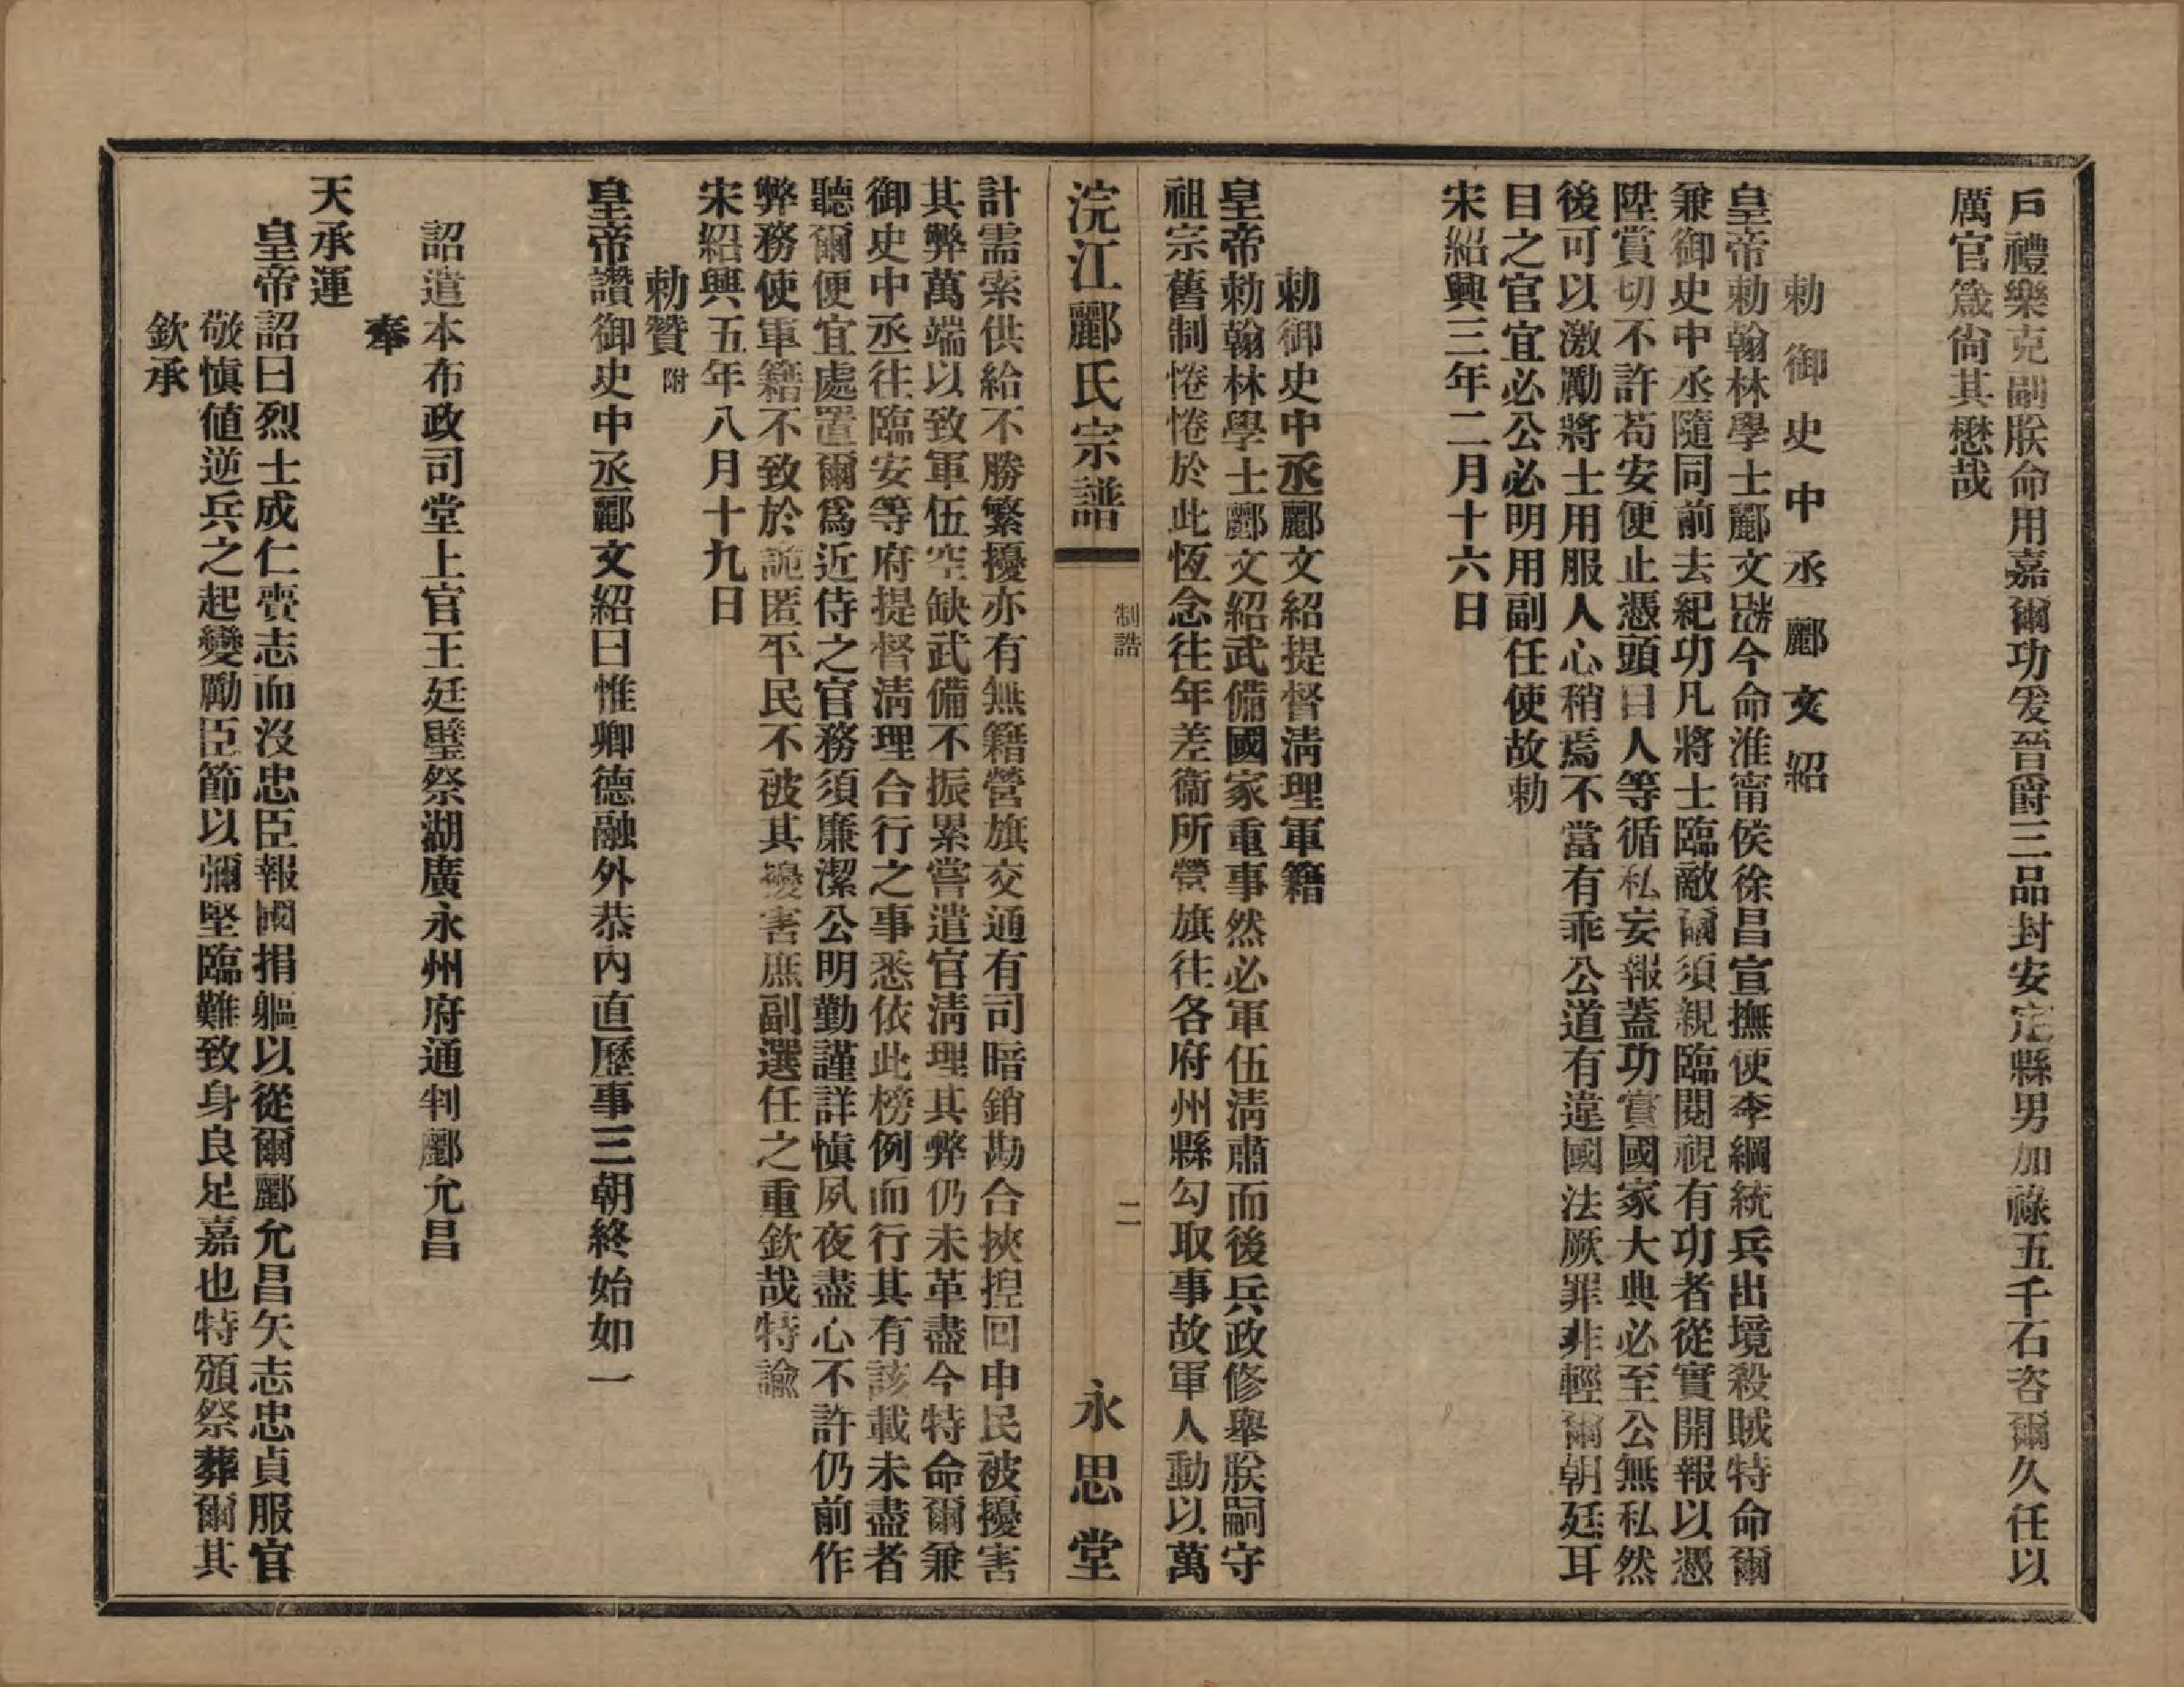 戶禮樂克副朕命用嘉爾功爰晉爵三品封安定縣男加祿五千石咨爾久任以
厲官箴尙其懋哉
勅御史中丞酈文紹
皇帝勅翰林學士酈文紹今命淮甯侯徐昌宣撫使李綱統兵出境殺賊特命爾
兼御史中丞隨同前去紀功凡將士臨敵爾須親臨閱視有功者從實開報以憑
陞賞切不許苟安便止憑頭目人等循私妄報蓋功賞國家大典必至公無私然
後可以激勵將士用服人心稍焉不當有乖公道有違國法厥罪非輕爾朝廷耳
目之官宜必公必明用副任使故勅
宋紹興三年二月十六日
勅御史中丞酈文紹提督淸理軍籍
皇帝勅翰林學士酈文紹武備國家重事然必軍伍淸肅而後兵政修舉朕嗣守
祖宗舊制惓惓於此恆念往年差衞所營旗往各府州縣勾取事故軍人動以萬
浣江酈氏宗譜 制誥 二 永思堂
計需索供給不勝繁擾亦有無籍營旗交通有司暗銷勘合挾捏回申民被擾害
其弊萬端以致軍伍空缺武備不振累嘗遣官淸理其弊仍未革盡今特命爾兼
御史中丞往臨安等府提督淸理合行之事悉依此榜例而行其有該載未盡者
聽爾便宜處置爾爲近侍之官務須廉潔公明勤謹詳愼夙夜盡心不許仍前作
弊務使軍籍不致於詭匿平民不被其擾害庶副選任之重欽哉特諭
宋紹興五年八月十九日
勅贊附
皇帝讚御史中丞酈文紹曰惟卿德融外恭內直歷事三朝終始如一
詔遣本布政司堂上官王廷璧祭湖廣永州府通判酈允昌
奉
天承運
皇帝詔曰烈士成仁賚志而沒忠臣報國捐軀以從爾酈允昌矢志忠貞服官
敬愼値逆兵之起變勵臣節以彌堅臨難致身良足嘉也特頒祭葬爾其
欽承